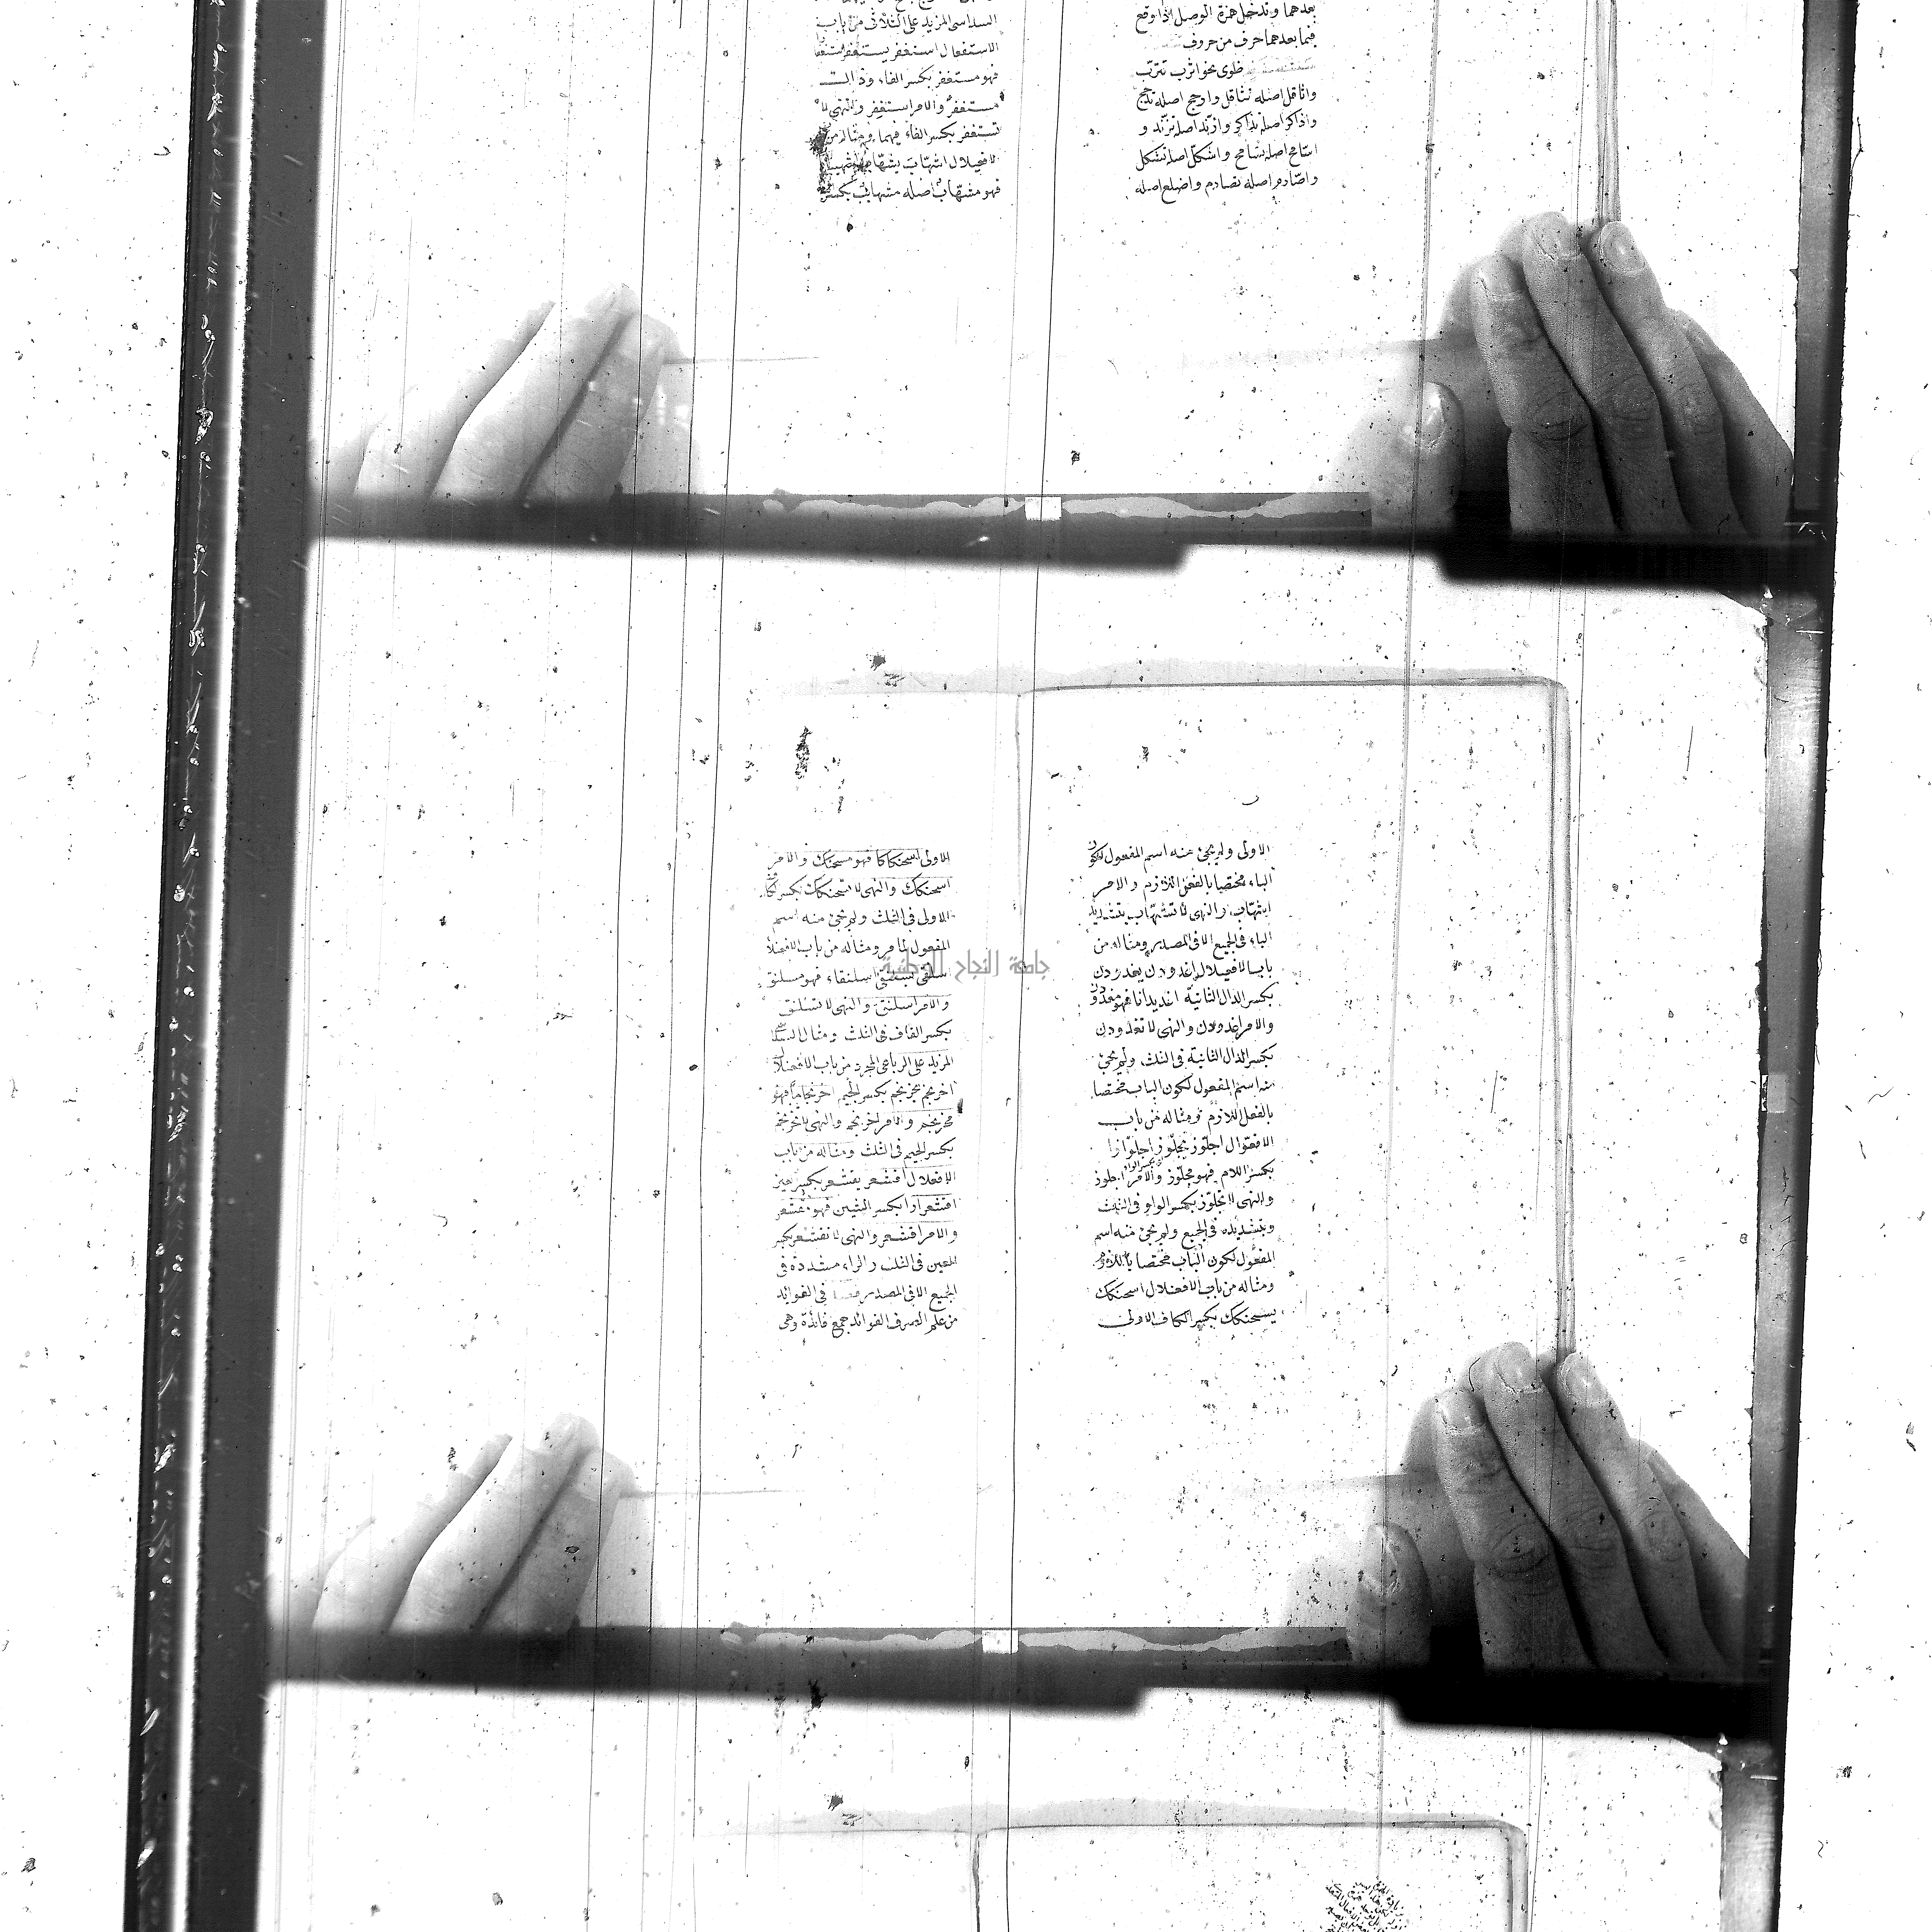 بعدهما وتدخل همزة الوصل اذا وقع
فيما بعدهما حرف من حروف
ظوى نحو اترب تترب
واثاقل اصله تثاقل وادجج اصله تدجج
واذاكر اصله تذاكر وازتد اصله تزتد و
اسامح اصله تسامح واشكل اصله تشكل
واصادم اصله تصادم واضلع اصله
السداسى المزيد على الثلاثى من باب
الاستفعال استغفر يستغفر استغفا
فهو مستغفر بكسر الفاء وذا لك
مستغفر والامر استغفر والنهى لا
تستغفر بكسر الفاء فيهما ومثاله من
الافعيلال اشهاب يشهاب اشهيبا
فهو مشهاب اصله مشهابب بكسر
الاولى ولم يجئ منه اسم المفعول لكون
الباء مختصا بالفعل اللازم والامر
اشهاب والنهى لا تشهاب بتشديد
الباء فى الجميع الا فى المصدر ومثاله من
باب الافعيلال اغدودن يغدودن
بكسر الدال الثانية اغديدانا فهو مغدودن
والامر اغدودن والنهى لا تغدودن
بكسر الدال الثانية فى الثلث ولم يجئ
منه اسم المفعول لكون الباب مختصا
بالفعل اللازم ومثاله من باب
الافعوال اجلوذ يجلوذ اجلواذا
بكسر اللام فهو مجلوذ بكسر الواو والامر اجلوذ
والنهى لا تجلوذ بكسر الواو فى الثلث
وبتشديده فى الجميع ولم يجئ منه اسم
المفعول لكون الباب مختصا باللازم
ومثاله من باب الافعنلال اسحنكك
يسحنكك بكسر الكاف الاولى
الاولى اسحنكاكا فهو مسحنكك والامر
اسحنكك والنهى لا تسحنكك بكسر الكاف
الاولى فى الثلث ولم يجئ منه اسم
المفعول لما مر ومثاله من باب الافعنلا
سلنقى يسلنقى اسلنقاء فهو مسلنق
والامر اسلنق والنهى لا تسلنق
بكسر القاف فى الثلث ومثال السداسى
المزيد على الرباعى المجرد من باب الافعنلال
احرنجم يحرنجم بكسر الجيم احرنجاما فهو
محرنجم والامر احرنجم والنهى لا تحرنجم
بكسر الجيم فى الثلث ومثاله من باب
الافعلال اقشعر يقشعر بكسر العين
اقشعرارا بكسر الشين فهو مقشعر
والامر اقشعر والنهى لا تقشعر بكسر
العين فى الثلث والراء مشددة فى
الجميع الا فى المصدر فصل فى الفوائد
من علم الصرف الفوائد جمع فائدة وهى
جامعة النجاح الوطنية